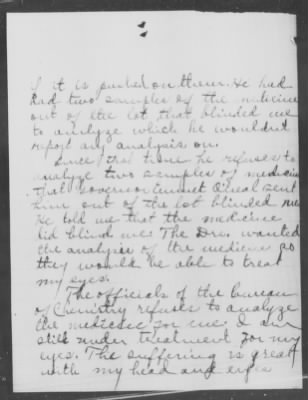 if it is pushed on them. He had
had two samples of the medicine
out of the lot that blinded me
to analyze which he wouldnt
report any analysis on.
Since that time he refuses to
analyze two samples of medicine
that Governor Emmet Oneal sent
him out of the lot blinded me.
He told me that the medicine
did blind me. The Drs. wanted
the analysis of the medicine so
they would be able to treat
my eyes.
The officials of the bureau
of Chemistry refuses to analyze
the medicine for me. I am
still under treatment for my
eyes. The suffering is great
with my head and eyes